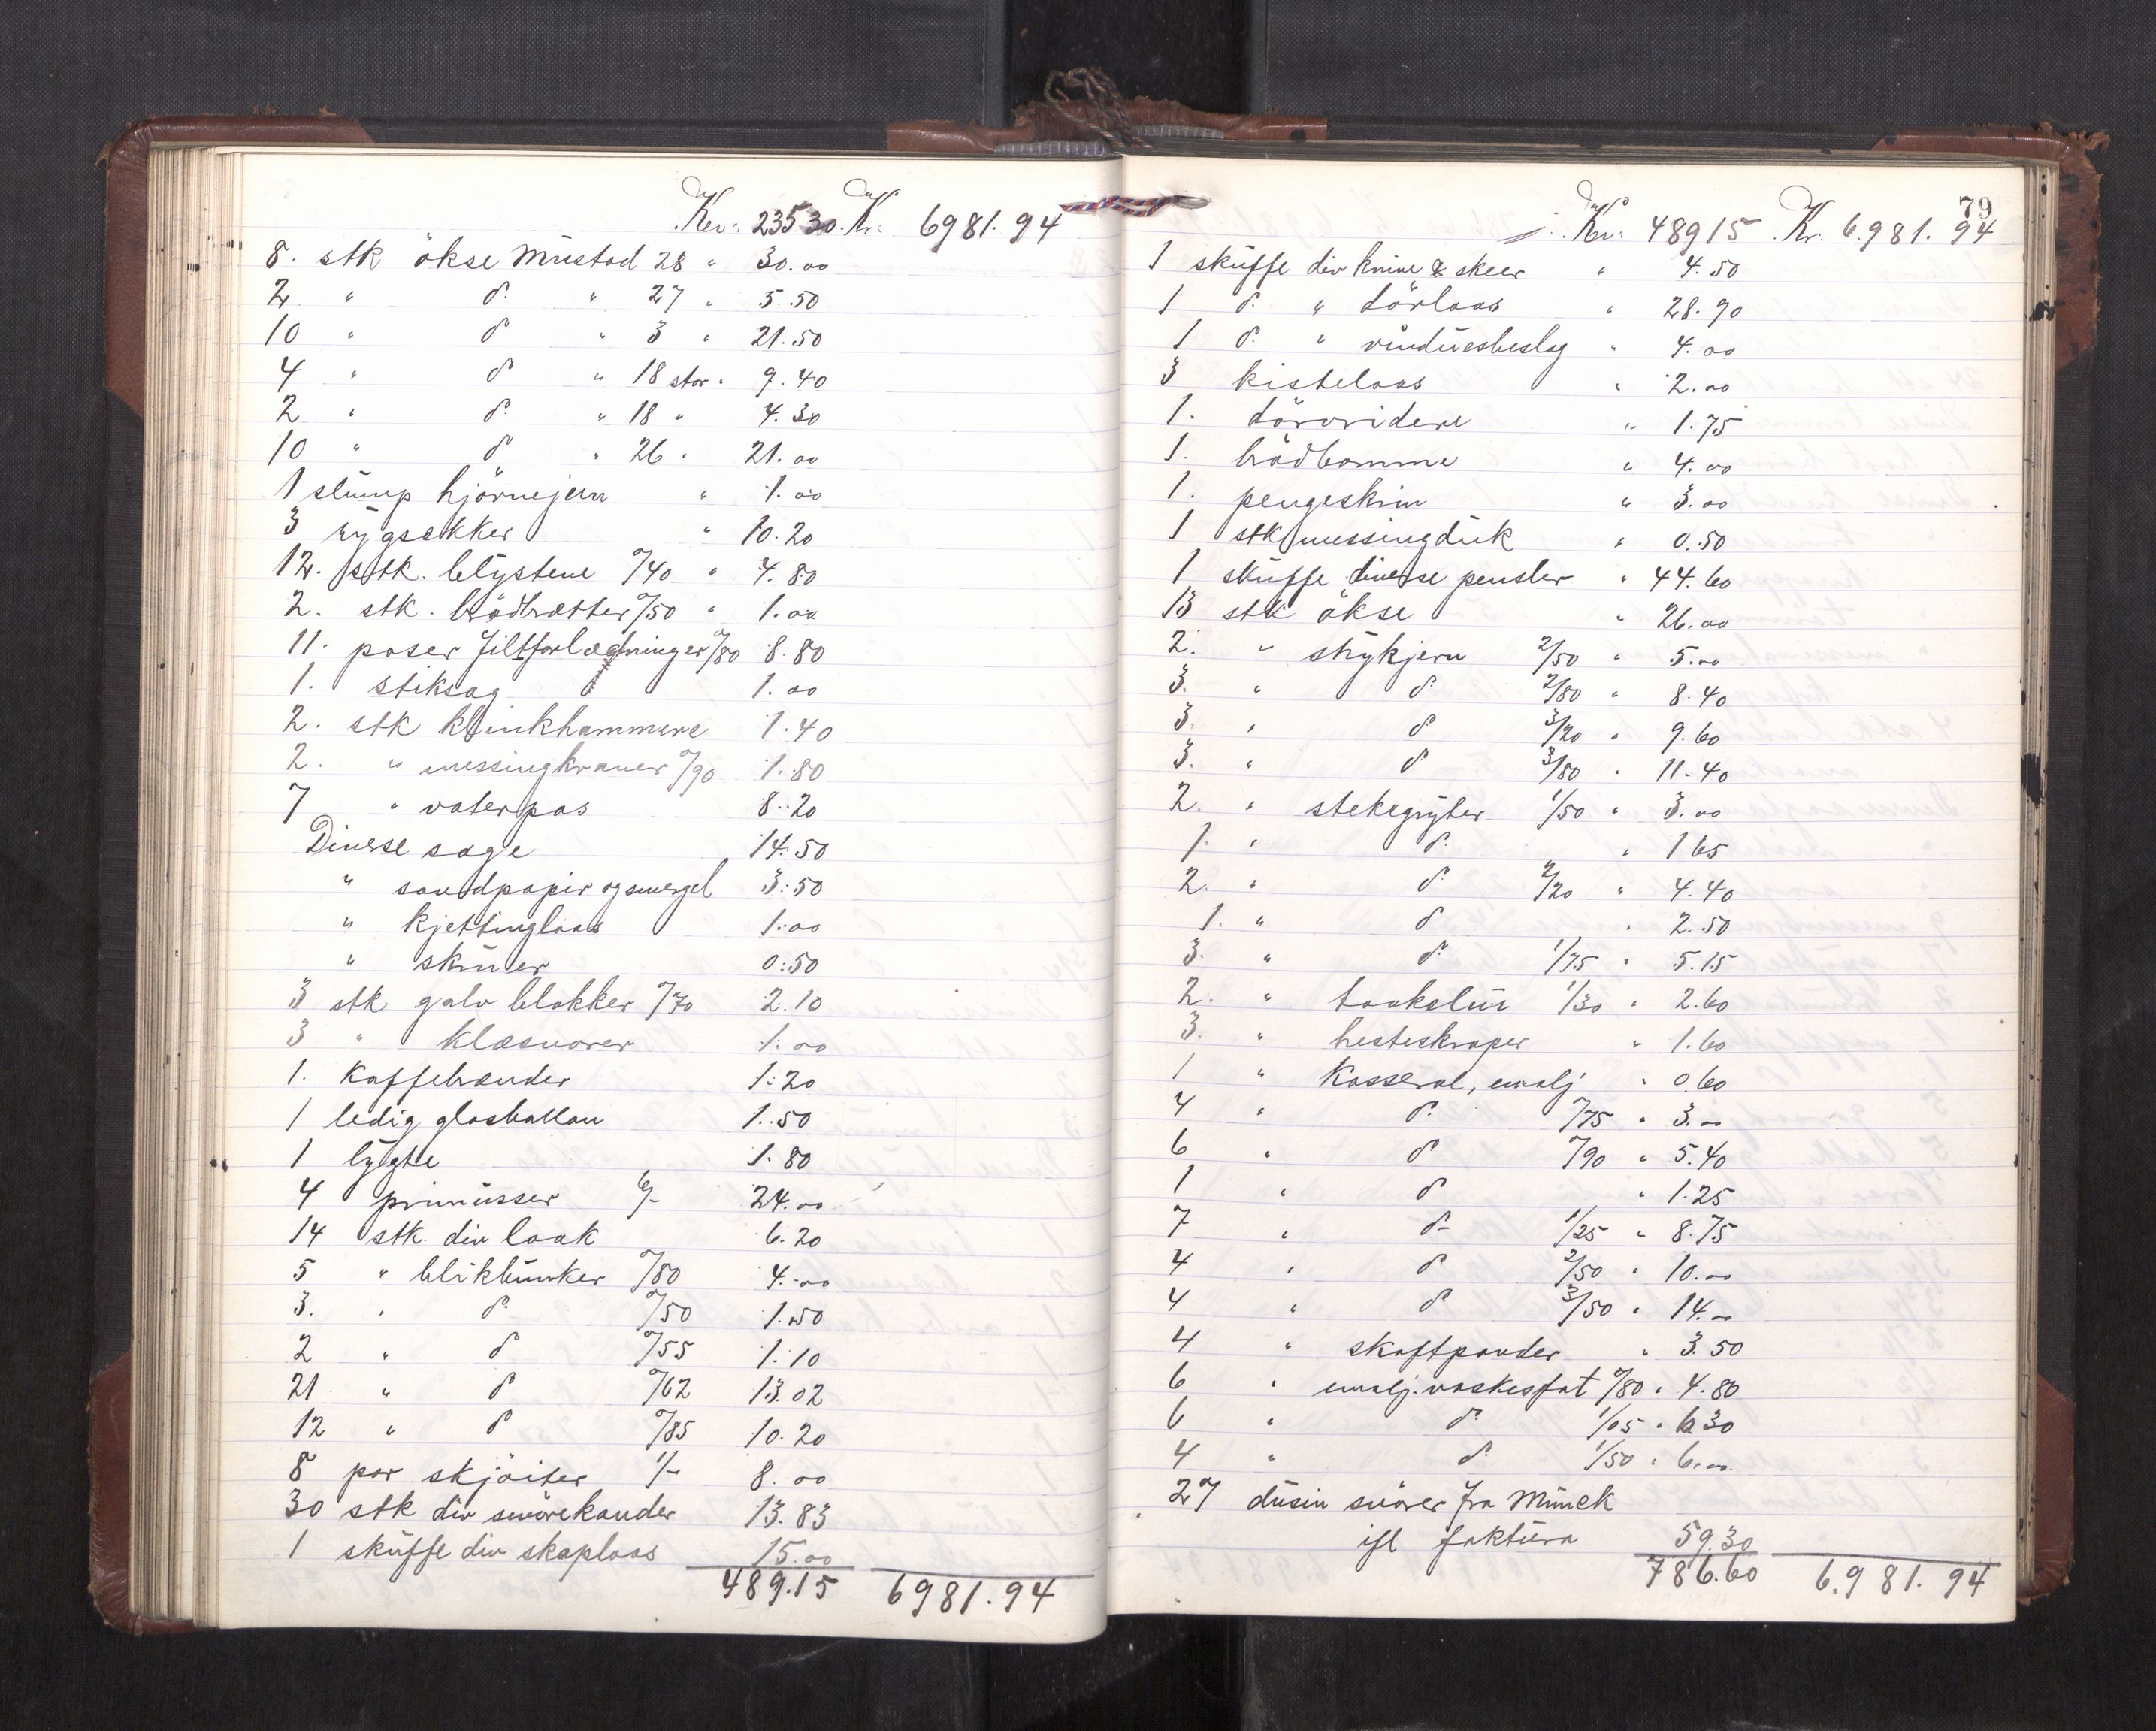 Kr: 235 30. Kr: 6981.94
8. stk ökse Mustad 28 " 30.00
2 " do " 27 " 5.50
10 " do " 3 " 21.50
4 " do " 18 stor " 9.40
2 " do " 18 " 4.30
10 " do " 26 " 21.00
1 slump hjörnejern " 1.00
3 rygsekker " 10.20
12. stk. blystene 0/40 " 4.80
2. stk. brödbretter 0/50 " 1.00
11. poser filtforlægninger 0/80 8.80
1. stiksag 1.00
2. stk klinkhammere 1.40
2. " messingkraner 0/90 1.80
7 " vaterpas 8.20
Diverse sage 14.50
" sandpapir og smergel 3.50
" kjettinglaas 1.00
" skruer 0.50
3 stk galv blokker 0/70 2.10
3 " klæsnorer 1.00
1. Kaffebrænder 1.20
1 ledig glasballon 1.50
1 lygte 1.80
4 primusser 6/- 24.00
14 stk. div laak 6.20
5 " blikbunker 0/80 4.00
3. " do 0/50 1.50
2 " do 0/55 1.10
21 " do 0/62 13.02
12 " do 0/85 10.20
8 par skjöiter 1/- 8.00
30 stk div smörekander 13.83
1 skuffe div skaplaas 15.00
489.15 6981.94
79
Kr: 48915 Kr. 6.981.94
1 skuffe div knive & skeer " 4.50
1 do " dörlaas " 28.90
1 do " vinduesbeslag " 4.00
3 kistelaas " 2.00
1. dörvridere " 1.75
1. brödbomme " 4.00
1. pengeskrin " 3.00
1 stk messingduk " 0.50
1 skuffe diverse pensler " 44.60
13 stk ökse " 26.00
2. " strykjern 2/50 " 5.00
3. " do 2/80 " 8.40
3. " do 3/20 " 9.60
3. " do 3/80 " 11.40
2. " stekegryter 1/50 " 3.00
1. " do " 1 65
2. " do 2/20 " 4.40
1. " do " 2.50
3. " do 1/75 " 5.15
2. " taakelur 1/30 " 2.60
3. " hesteskraper " 1.60
1 " Kasserol, emalj " 0.60
4 " do 0/75 " 3.00
6 " do 0/90 " 5.40
1 " do " 1.25
7 " do 1/25 " 8.75
4 " do 2/50 " 10.00
4 " do 3/50 " 14.00
4 " skaftpander " 3.50
6 " emalj. vaskesfat 0/80 " 4.80
6 " do 1/05 " 6 30
4 " do 1/50 " 6.00
27 dusin snörer fra Munck
ifl faktura 59.30
786.60 6.981.94